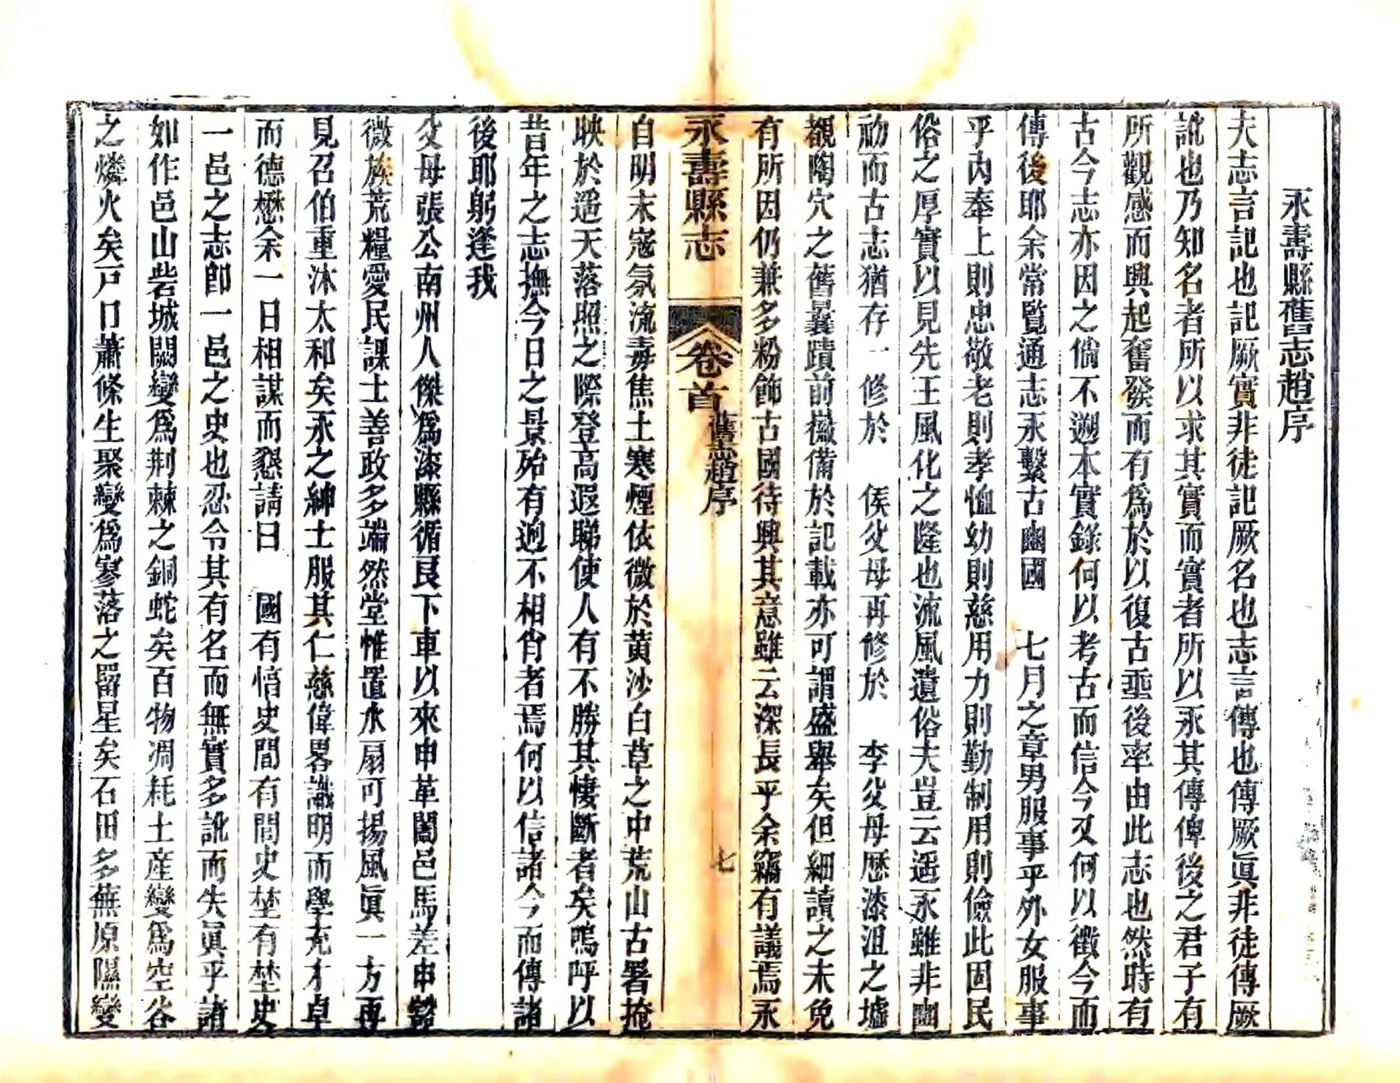 永壽縣舊志趙序
夫志言記也記厥實非徒記厥名也志言傳也傳厥眞非徒傳厥
訛也乃知名者所以求其實而實者所以永其傳俾後之君子有
所觀感而興起奮發而有爲於以復古垂後率由此志也然時有
古今志亦因之倘不遡本實錄何以考古而信今又何以徵今而
傳後耶余常覧通志永繫古豳國　七月之章男服事乎外女服事
乎內奉上則忠敬老則孝恤幼則慈用力則勤制用則儉此固民
俗之厚實以見先王風化之隆也流風遺俗夫豈云遥永雖非豳
礽而古志猶存一修於　侯父母再修於　李父母歷漆沮之墟
觀陶穴之舊曩蹟前徽備於記載亦可謂盛舉矣但細讀之未免
有所因仍兼多粉飾古國待興其意雖云深長乎余竊有議焉永
永壽縣志
卷首
舊志趙序
七
自明末寇氛流毒焦土寒煙依微於黄沙白草之中荒山古署掩
映於遥天落照之際登高遐睇使人有不勝其悽斷者矣嗚呼以
昔年之志撫今日之景殆有逈不相肖者焉何以信諸今而傳諸
後耶躬逢我
父母張公南州人傑爲漆縣循良下車以來申革闔邑馬差申豁
微族荒糧愛民課士善政多端然堂惟置水扇可揚風眞一方再
見召伯重沐太和矣永之紳士服其仁慈偉畧識明而學充才卓
而德懋余一日相謀而懇請曰　國有情史間有間史埜有埜史
一邑之志卽一邑之史也忍令其有名而無實多訛而失眞乎諸
如作邑山砦城闕變爲荆棘之銅蛇矣百物凋耗土産變爲空谷
之燐火矣戸口蕭條生聚變爲寥落之畱星矣石田多蕪原隰變